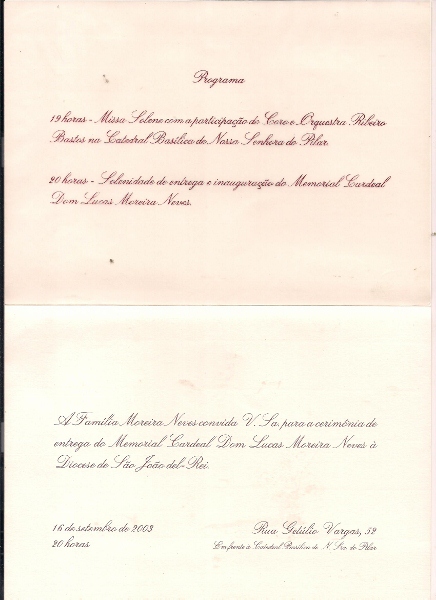 Programa
19 horas - Missa Solene com a participação do Coro e Orquestra Ribeiro
Bastos na Catedral Basílica de Nossa Senhora do Pilar.
20 horas - Solenidade de entrega e inauguração do Memorial Cardeal
Dom Lucas Moreira Neves.
A Família Moreira Neves convida V. Sa. para a cerimônia de
entrega do Memorial Cardeal Dom Lucas Moreira Neves à
Diocese de São João del-Rei.
16 de setembro de 2003
20 horas
Rua Getúlio Vargas, 52
Em frente à Catedral Basílica de N. Sra. do Pilar